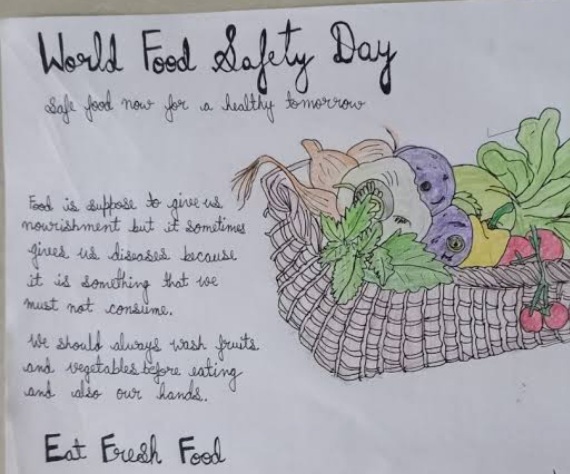 World Food Safety Day
Safe food now for a healthy tomorrow
Food is suppose to give us
nourishment but it sometimes
gives us diseases because
it is something that we
must not consume.
We should always wash fruits
and vegetables before eating
and also our hands.
Eat Fresh Food